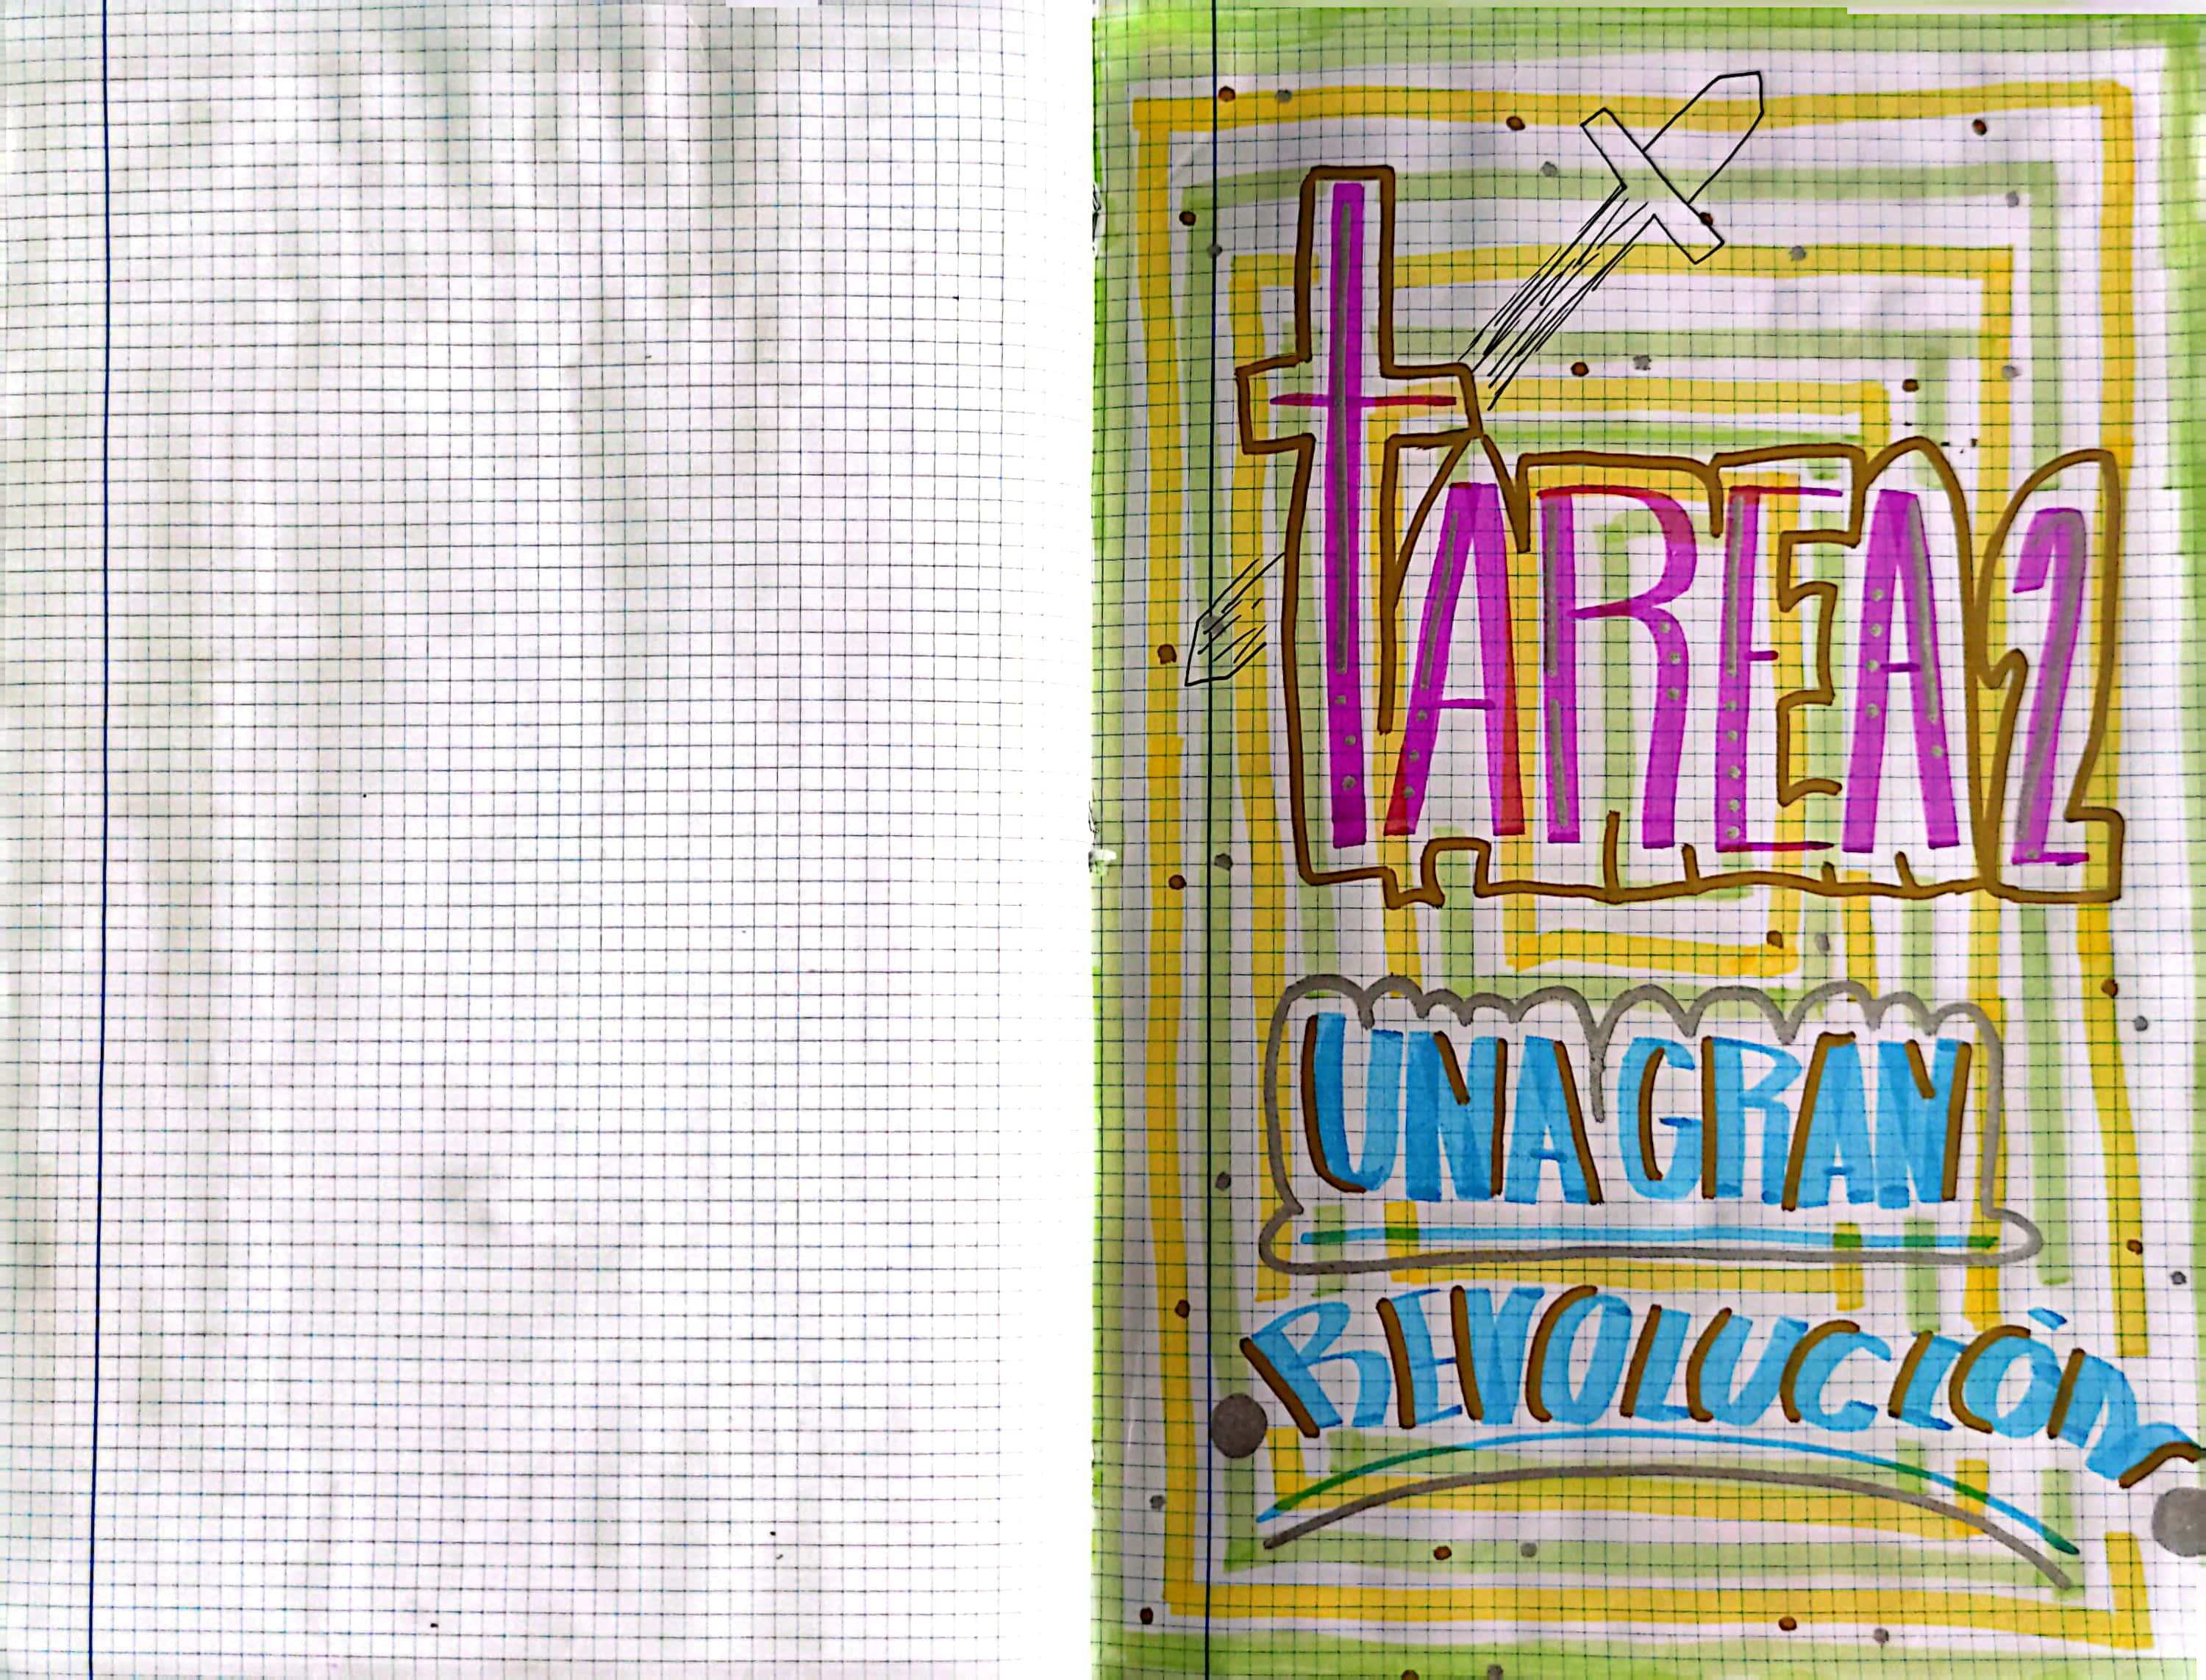 tAREA 2
UNA GRAN
REVOLUCIÓN